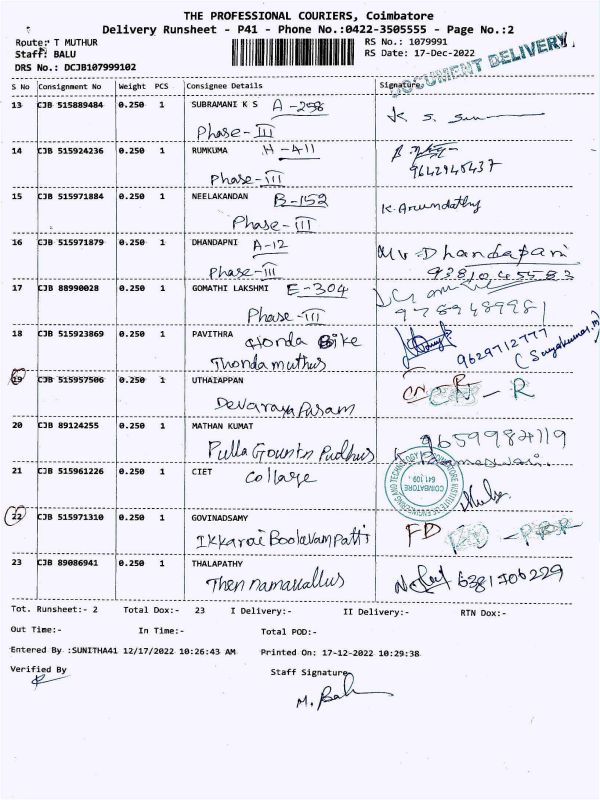 THE PROFESSIONAL COURIERS, Coimbatore
Delivery Runsheet - P41 - Phone No.:0422-3505555 - Page No.:2
Route: T MUTHUR
RS No.: 1079991
Staff: BALU
RS Date: 17-Dec-2022
DRS No.: DCJB107999102
DOCUMENT DELIVERY
S No Consignment No Weight PCS Consignee Details Signature
13 CJB 515889484 0.250 1 SUBRAMANI K S A-298
K S.
Phase-III
14 CJB 515924236 0.250 1 RUMKUMA H-411
9642945437
Phase-III
15 CJB 515971884 0.250 1 NEELAKANDAN B-152
K. Arundathy
Phase-III
16 CJB 515971879 0.250 1 DHANDAPNI A-12
Mr. Dhandapani
Phase-III 9381045583
17 CJB 88990028 0.250 1 GOMATHI LAKSHMI E-304
9789489981
Phase-III
18 CJB 515923869 0.250 1 PAVITHRA Honda Bike
9629712777
Thondamuthus
19 CJB 515957506 0.250 1 UTHAIAPPAN
CN-R - R
20 CJB 89124255 0.250 1 MATHAN KUMAT
9659984119
Pulla Pudhus
21 CJB 515961226 0.250 1 CIET Collage
COIMBATORE
641 109
22 CJB 515971310 0.250 1 GOVINADSAMY
FD
Ikkarai Boolavampatti
23 CJB 89086941 0.250 1 THALAPATHY
6381706229
Tot. Runsheet:- 2 Total Dox:- 23 I Delivery:- II Delivery:- RTN Dox:-
Out Time:- In Time:- Total POD:-
Entered By :SUNITHA41 12/17/2022 10:26:43 AM Printed On: 17-12-2022 10:29:38
Verified By Staff Signature
M. Bal